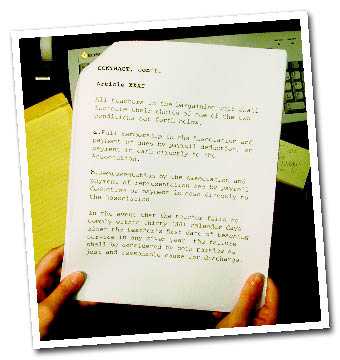 CONTRACT, con't.
Article XXXX
All teachers in the bargaining unit shall
indicate their choice of one of the two
conditions set forth below.
a.Full membership in the Association and
payment of dues by payroll deduction, or
payment in cash directly to the
Association.
b.Representation by the Association and
payment of representation fee by payroll
deduction or payment in cash directly to
the Association
In the event that the teacher fails to
comply within thirty (30) calendar days
after the teacher's first date of
service in any given year, the failure
shall be considered by both parties as
just and reasonable cause for discharge.